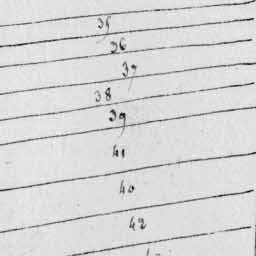 35
36
37
38
39
41
40
42